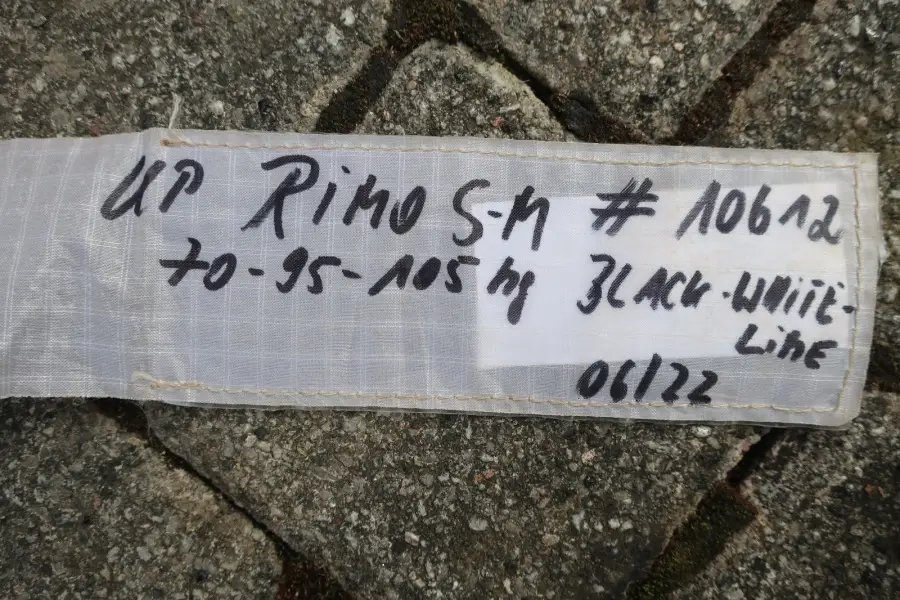 UP RiMO S-M # 10612
70-95-105 kg BLACK-WHiTE-
LiME
06/22